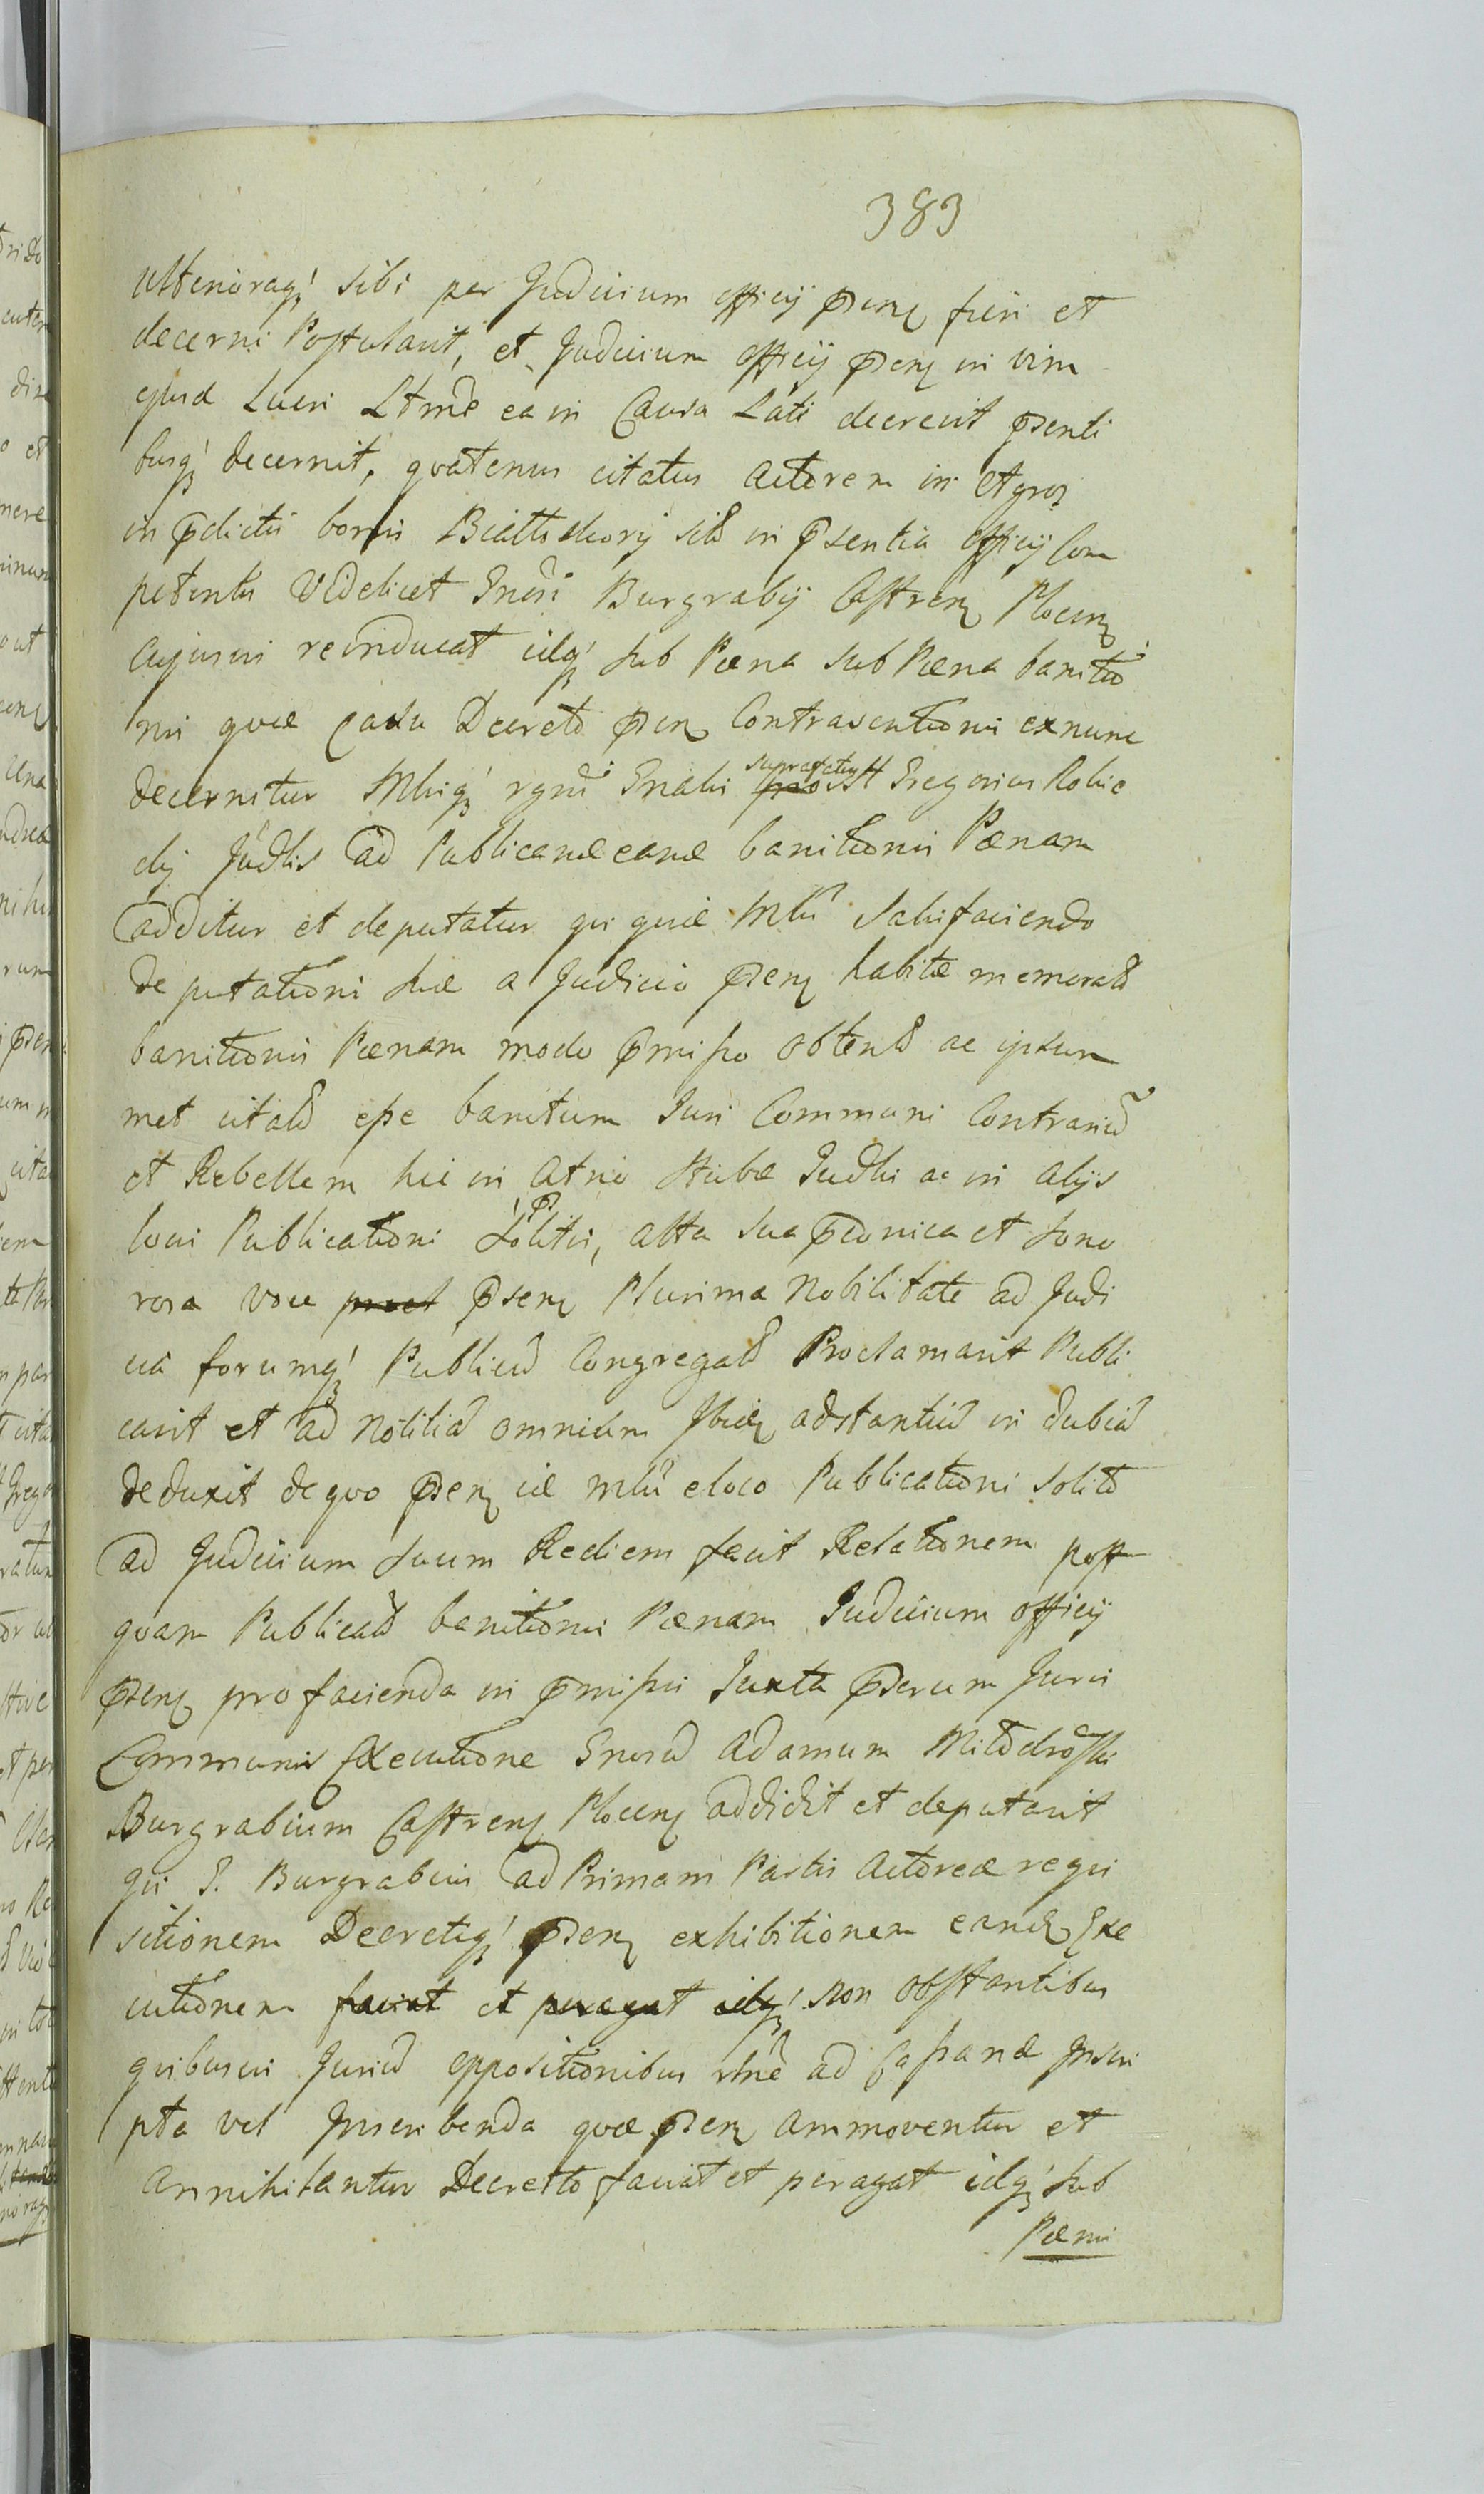 383
ulterioraq́ sibi per Judicium officij pñs fieri et
decerni Postulavit, et Judicium officij pñs in vim
ejusd Lucri Ltmẽ ea in Causa Lati decrevit psenti
busq́ decernit, qvatenus citatus Actorem in et gros
in pdictis bonis Białłochory sitõ in psentia officij Com
petentis Videlicet Gnosi Burgrabij Castren Plocen
cujusvis reinducat idq́ sub Pœna sub Pœna banitio
nis qvæ casu Decreto psen Contraventionis exnunc
decernitur Mlriq́ rgni Gnalis suprafatus Gregorius Robic
dij Judlis ad Publicandæ eand banitionis Pœnam
additur et deputatur qui quidẽ Mlris Satisfaciendo
deputationi suæ a Judicio psen habitæ memoratã
banitionis Pœnam modo pmisso obtentã ac ipsum
met citatũ esse banitum Juri Communi Contrariũ
et Rebellem hic in Atrio Stubæ Judlis ac in alijs
locis Publicationi solitis, alta sua pconica et sono
rosa voce præt psen Plurima Nobilitate ad Judi
cia forumq́ Publicũ Congregatã Proclamavit Publi
cavit et ad Notitiã omnium Ibidẽ adstantiũ in dubiã
deduxit de qvo psen id Mlris e loco Publicationi solito
ad Judicium suum Rediens fecit Relationem post
qvam Publicatã banitionis Pœnam Judicium officij
psen pro facienda in pmissis Juxta pscrum Juris
Communis Executione Gnosũ Adamum Miłodroski
Burgrabium Castren Plocen addidit et deputavit
qui G. Burgrabius ad Primam Partis Actoreæ reqvi
sitionem Decretiq́ psen exhibitionem eandẽ Exe
cutionem faciat et peragat idq́ non obstantibus
qvibusvis Juriũ oppositionibus rõne ad Cassand Inscri
pta vel Inscribenda qvæ psen ammoventur et
annihilantur Decreto faciat et peragat idq́ sub
Pœnis